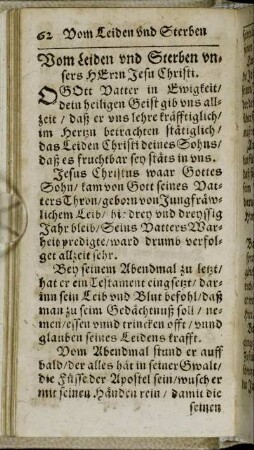 62 Vom Leiden vnd Sterben
Vom Leiden vnd Sterben vn-
sers HErrn Jesu Christi.
O GOtt Vatter in Ewigkeit/
dein heiligen Geist gib vns all-
zeit / daß er vns lehre kräfftiglich/
im Hertzn betrachten stätiglich/
das Leiden Christi deines Sohns/
daß es fruchtbar sey stäts in vns.
Jesus Christus waar Gottes
Sohn/ kam von Gott seines Vat-
ters Thron/geborn von Jungfräw-
lichem Leib/ bi/ drey vnd dreyssig
Jahr bleib/ Seins Vatters War-
heit predigte/ward drumb verfol-
get allzeit sehr.
Bey seinem Abendmal zu letzt/
hat er ein Testament eingsetzt/ dar-
inn sein Leib vnd Blut befohl/daß
man zu seim Gedächtnuß soll / ne-
men/essen vnnd trincken offt/vund
glauben seines Leidens krafft.
Vom Abendmal stund er auff
bald/der alles hat in seiner Gwalt/
die Füsse der Apostel sein/wusch er
mit seinen Händen rein / damit die
seinen